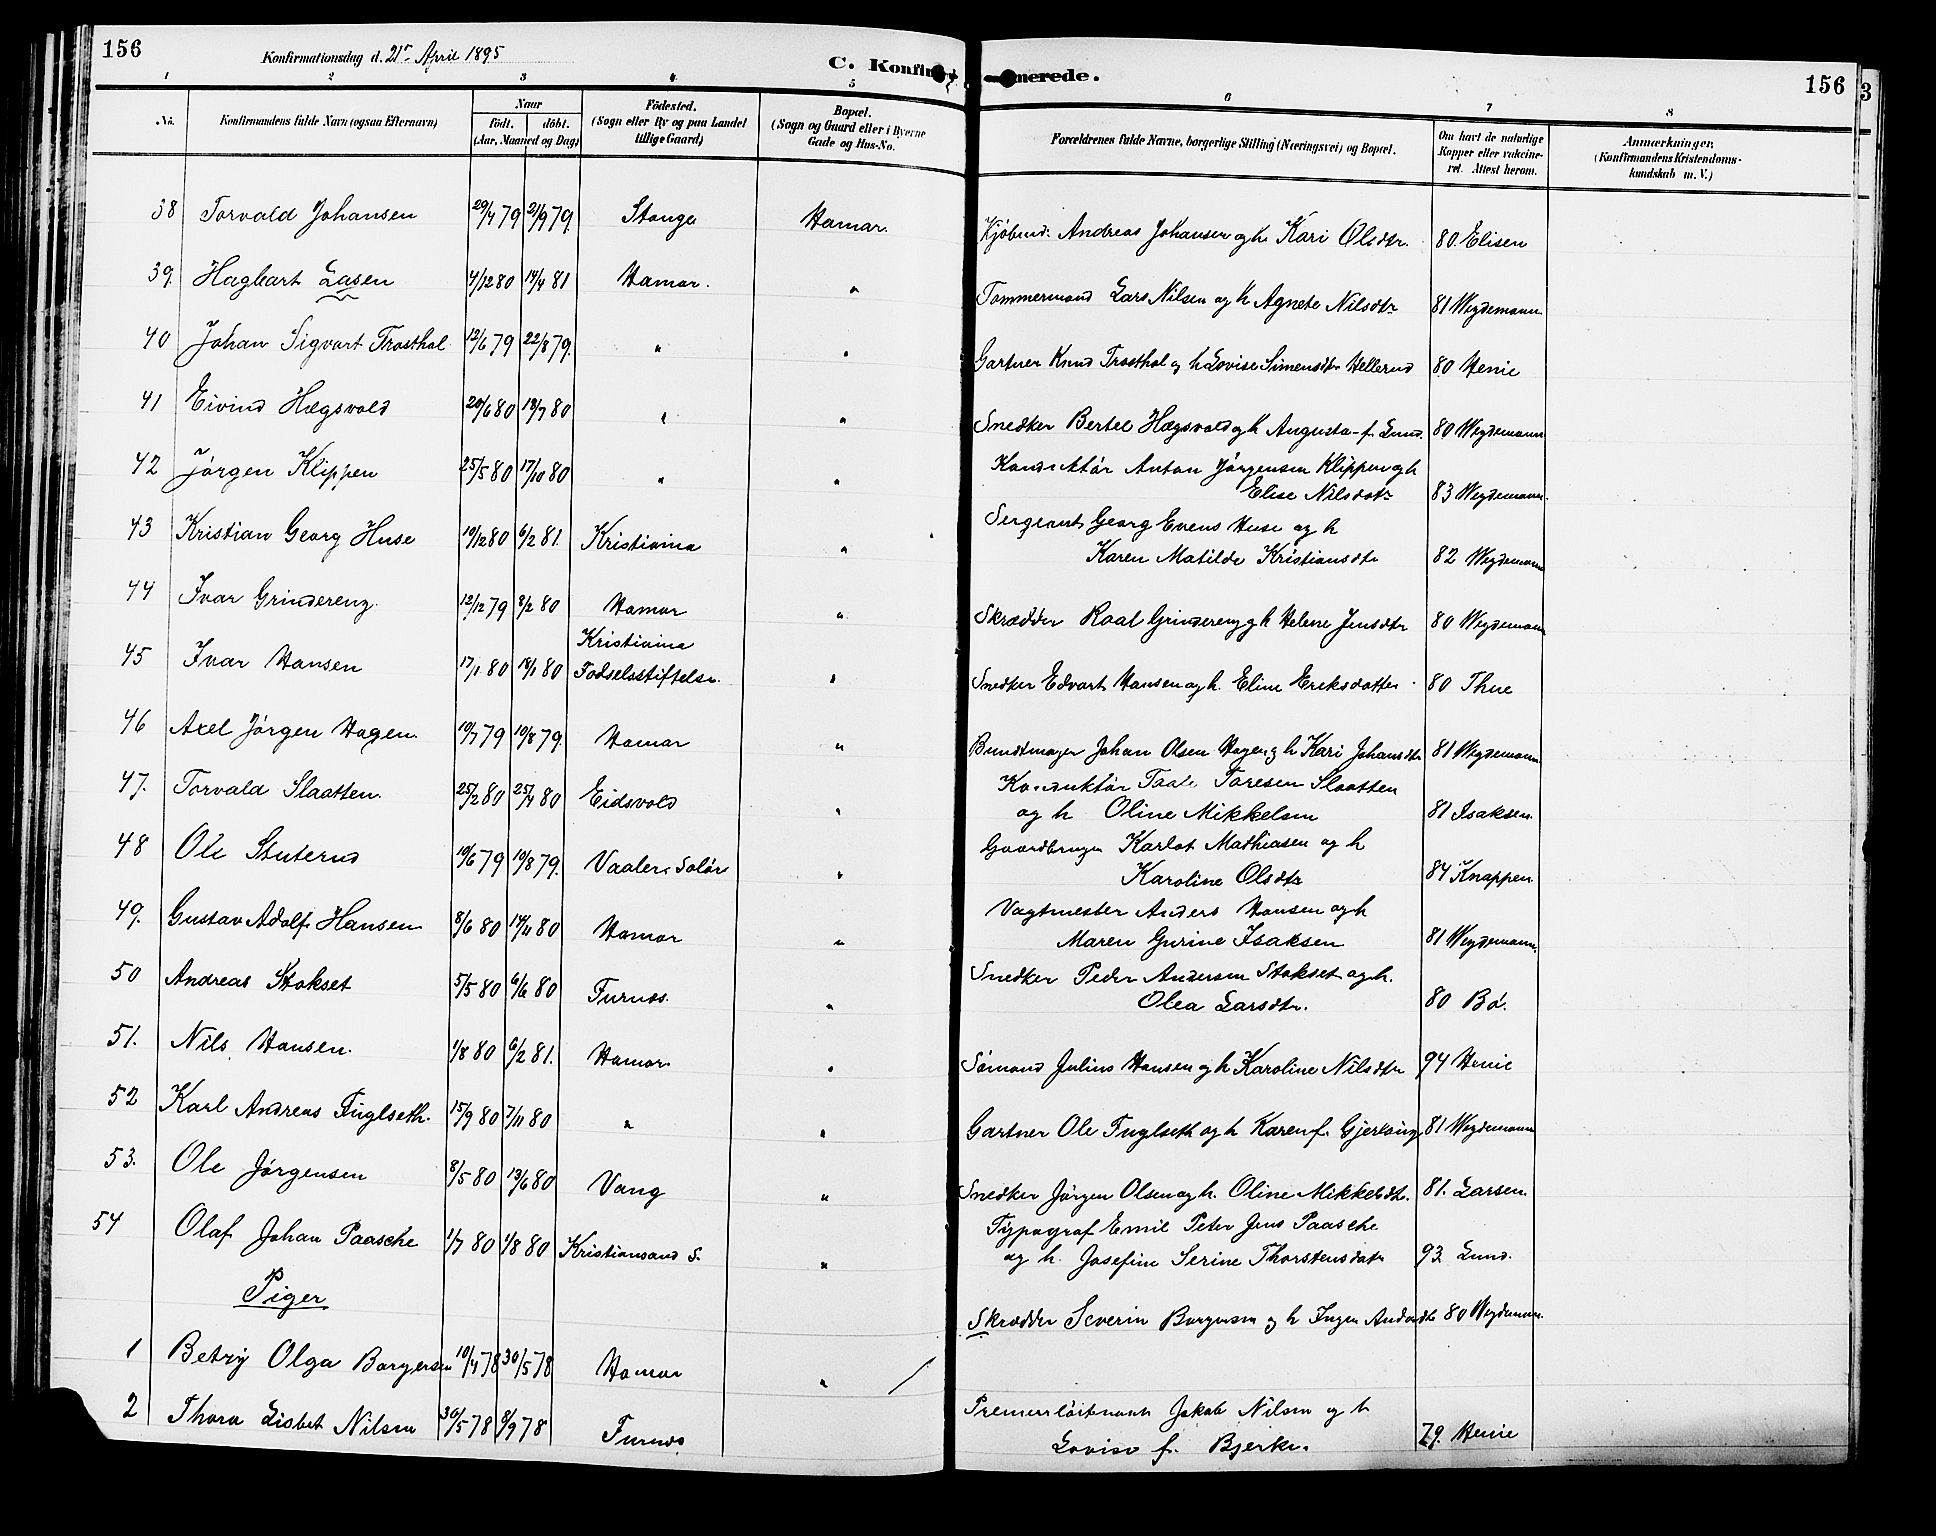 156
Konfirmationsdag d. 21de April 1895
C. Konfirmerede.
156
3
1 2 3 4 5 6 7 8
No.
Konfirmandens fulde Navn (ogsaa Efternavn)
Naar
født. døbt.
(Aar, Maaned og Dag)
Fødested.
(Sogn eller By og paa Landet
tillige Gaard)
Bopæl.
(Sogn og Gaard eller i Byerne
Gade og Hus-No.
Forældrenes fulde Navne, borgerlige Stilling (Næringsvei) og Bopæl.
Om havt de naturlige
Kopper eller vakcine-
ret. Attest herom.
Anmærkninger.
(Konfirmandens Kristendoms-
kundskab m. V.)
38 Torvald Johansen 29/4 79 21/9 79. Stange Hamar. Kjøbmd. Andreas Johansen og h. Kari Olsdtr. 80. Elisen
39. Hagbart Lasen 4/12 80 14/4 81 Hamar. " Tømmermand Lars Nilsen og h Agnete Nilsdtr 81 Weydemann.
40 Johan Sigvart Frosthol 12/6 79 22/8 79. " " Gartner Knud Frosthol og h Lovise Simensdtr Hellerud 80 Henie
41 Eivind Hægsvold 20/6 80 18/7 80 " " Snedker Bertel Hægsvold og h Augusta f. Lund. 80 Weydemann
42 Jørgen Klippen 25/5 80 17/10 80 " " Konduktør Anton Jørgensen Klippen og h
Elise Nilsdatr 83 Weydemann.
43 Kristian Georg Huse 19/12 80 6/2 81. Kristiania " Sergeant Georg Evens Huse og h
Karen Matilde Kristiansdtr 82 Weydemann
44 Ivar Grindereng. 12/12 79 8/2 80 Hamar " Skrædder Roal Grindereng og h Helene Jensdtr 80 Weydemann
45 Ivar Hansen 17/1 80 18/1 80 Kristiania
Fødselsstiftelse. " Snedker Edvart Hansen og h. Eline Eriksdatter 80 Thue
46 Axel Jørgen Hagen. 10/7 79 10/8 79. Hamar " Bundtmager Johan Olsen Hagen og h Kari Johansdtr 81 Weydemann
47. Torvald Slaatten. 25/2 80 25/4 80 Eidsvold " Konduktør Toresen Slaatten
og h Oline Mikkelsen 81 Isaksen.
48 Ole Stuterud 19/6 79 10/8 79. Vaaler i Solør " Gaardbruger Karlot Mathiasen og h
Karoline Olsdtr 84 Knappen.
49. Gustav Adolf Hansen 8/6 80 14/11 80 Hamar " Vagtmester Anders Hansen og h
Maren Gurine Isaksen 81 Weydemann.
50 Andreas Stokset 5/5 80 6/6 80 Furnes. " Snedker Peder Andersen Stokset og h.
Olea Larsdtr. 80 Bø.
51. Nils Hansen. 1/8 80 6/2 81. Hamar. " Sømand Julius Hansen og h Karoline Nilsdtr 94 Henie
52 Karl Andreas Fuglseth. 15/9 80 7/11 80 " " Gartner Ole Fuglseth og h Karen f. 81 Weydemann
53. Ole Jørgensen 8/5 80 13/6 80 Vang " Snedker Jørgen Olsen og h. Oline Mikkelsdtr. 81. Larsen.
54 Olaf Johan Paasche 1/7 80 1/8 80 Kristiansand S. " Typograf Emil Peter Jens Paasche
og h. Josefine Serine Thorstensdatr 93 Lund.
Piger
1 Betzy Olga Borgersen 10/4 78 30/5 78 Hamar " Skrædder Severin Borgersen og h Ingen Andersdtr 80 Weydemann.
2 Thora Lisbet Nilsen 30/5 78 8/9 78 Furnes Premierløitnant Jakob Nilsen og h
Lovise f. Bjerke. 79. Henie